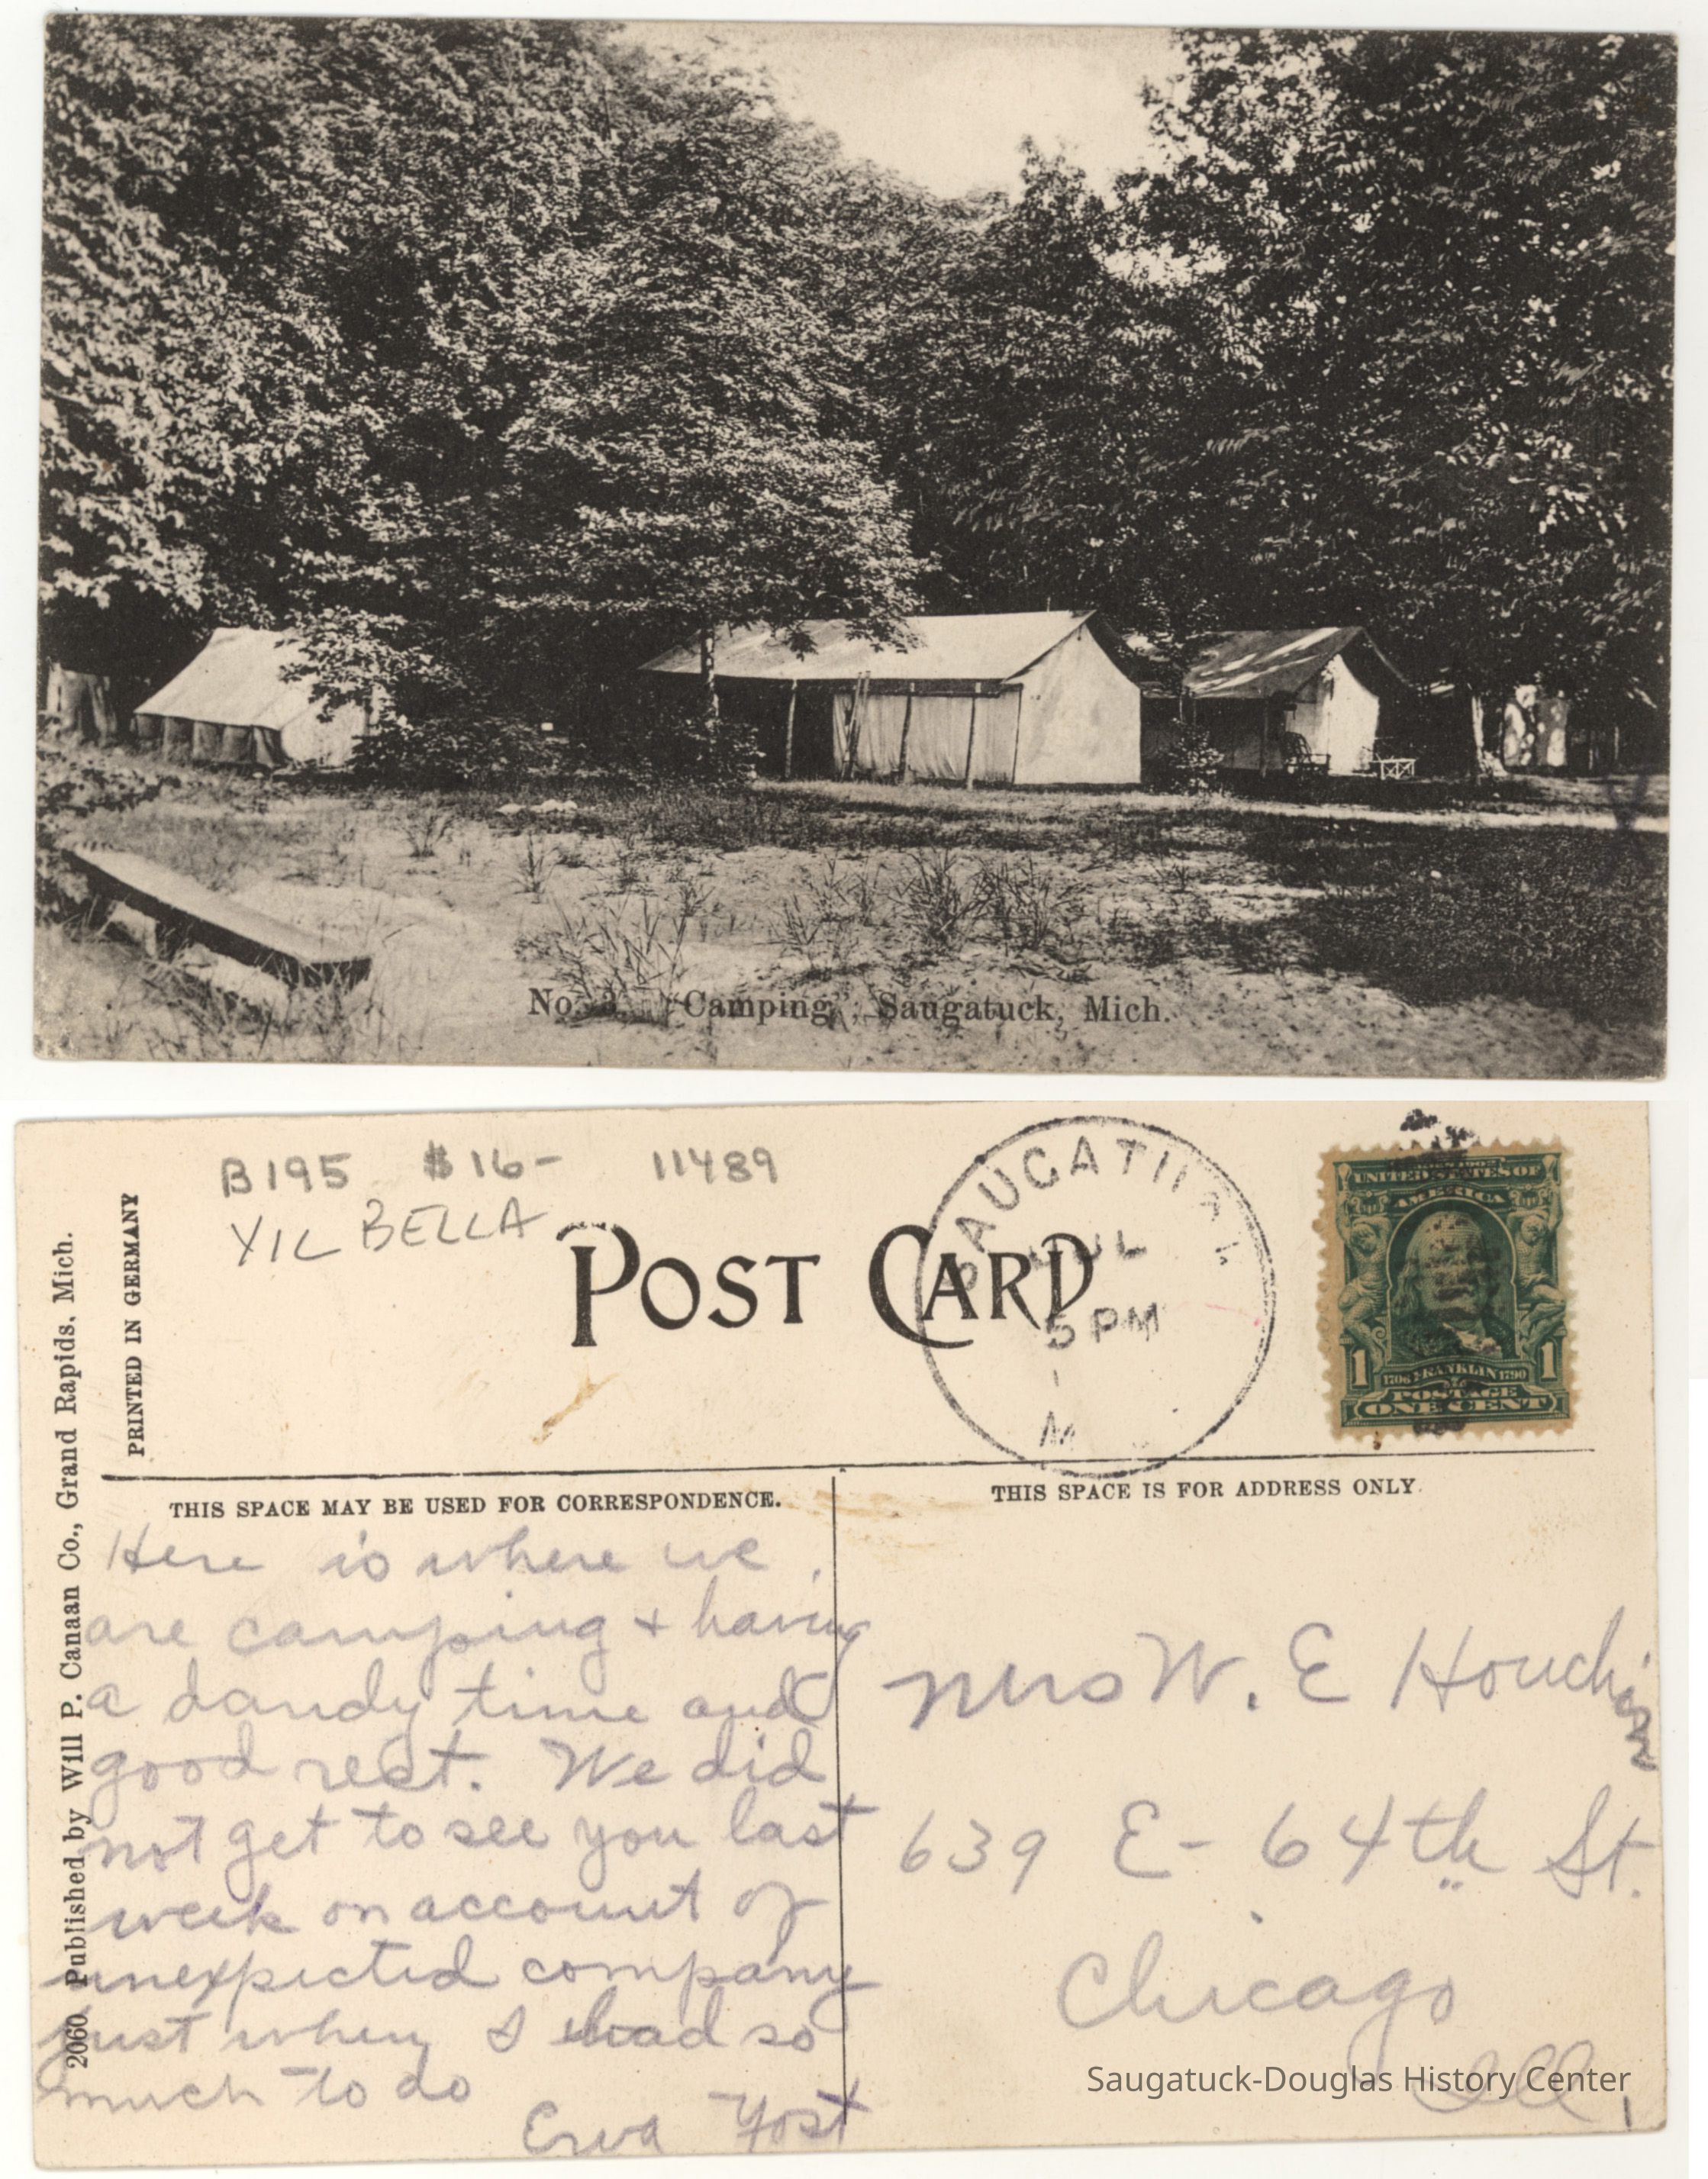 No. 3. "Camping", Saugatuck, Mich.
B195 $16- 11489
YIL BELLA
POST CARD
SAUGATUCK
JUL
5 PM
M
UNITED STATES OF
AMERICA
1 1706 FRANKLIN 1790 1
POSTAGE
ONE CENT
PRINTED IN GERMANY
2060 Published by Will P. Canaan Co., Grand Rapids, Mich.
THIS SPACE MAY BE USED FOR CORRESPONDENCE.
THIS SPACE IS FOR ADDRESS ONLY.
Here is where we
are camping + having
a dandy time and
good rest. We did
not get to see you last
week on account of
unexpected company
just when I had so
much to do
Erva Yost
Mrs W. E Houchins
639 E- 64th St.
Chicago
Ill.
Saugatuck-Douglas History Center